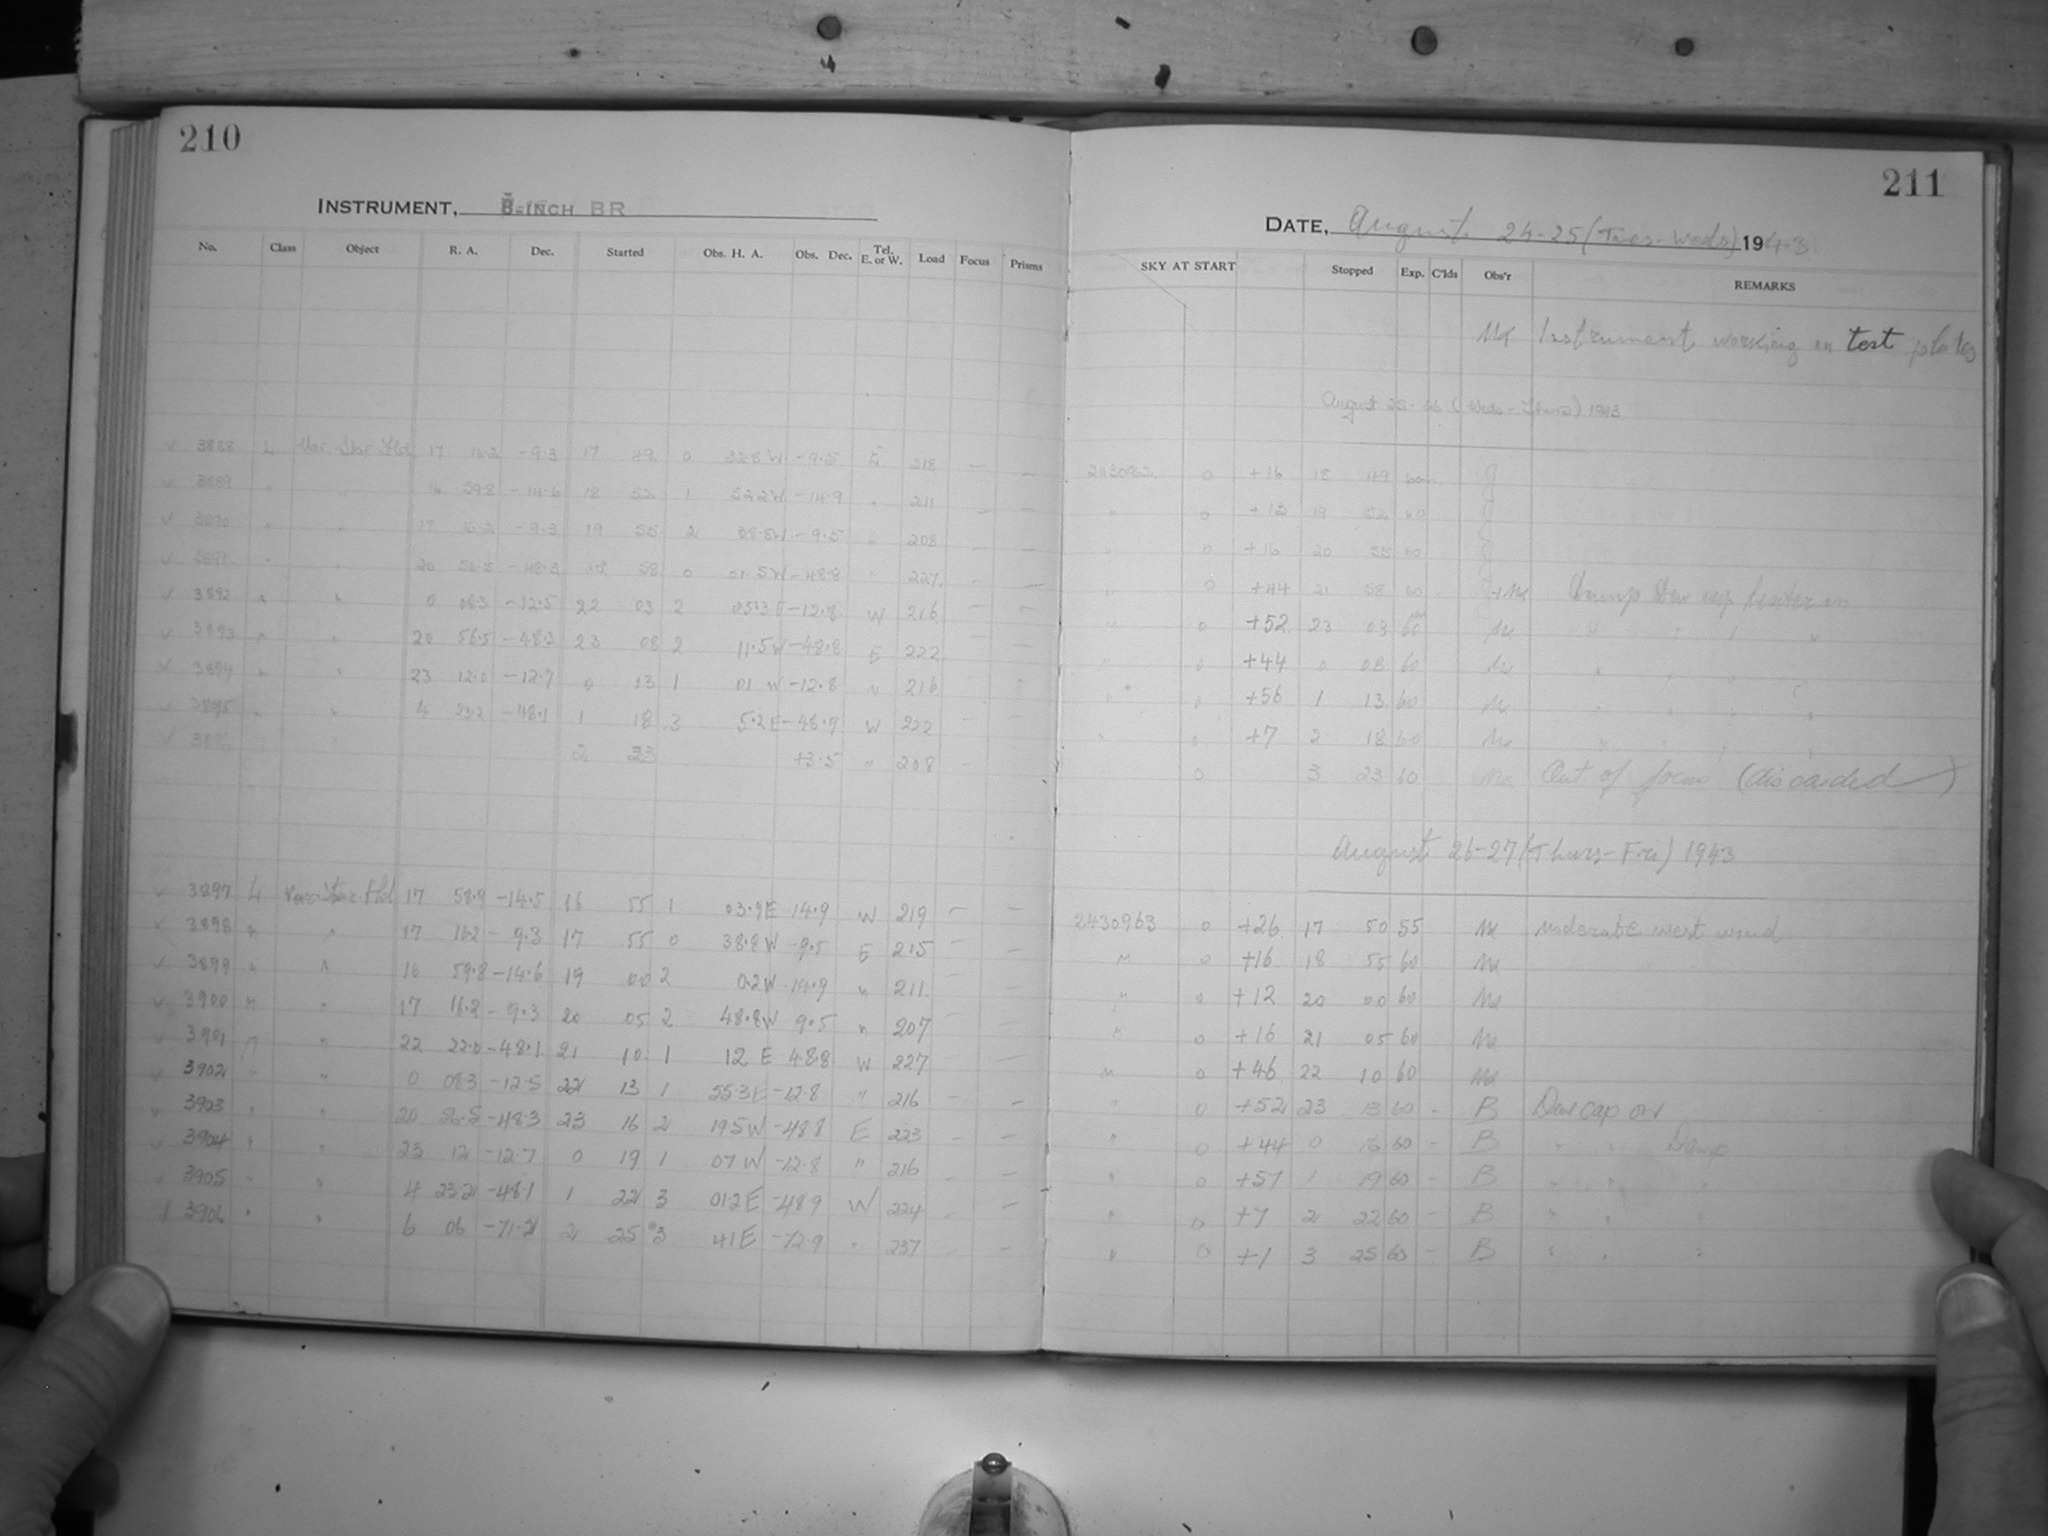 210
INSTRUMENT, 8-INCH BR
No. Class Object R. A. Dec. Started Obs. H. A. Obs. Dec. Tel. E. or W. Load Focus Prisms
3888 L Var. Star Fld 17 16.2 -9.3 17 49 0 32.8 W -9.5 E 218 — —
3889 " " 16 59.8 -14.6 18 52 1 52.2 W -14.9 " 211 — —
3890 " " 17 16.2 -9.3 19 55 2 -9.5 " 208 — —
3891 " " 20 56.5 -48.3 20 58 0 01.5 W -48.8 " 227 — —
3892 " " 0 083 -12.5 22 03 2 -12.8 W 216 — —
3893 " " 20 56.5 -48.3 23 08 2 11.5 W -48.8 E 222 —
3894 " " 23 12.0 -12.7 0 13 1 01 W -12.8 " 216
3895 " " 4 23.2 -48.1 1 18 3 5.2 E -48.9 W 222 — —
3896 " " 2 23 +3.5 " 208 —
3897 L Var. Star Fld 17 58.9 -14.5 16 55 1 03.9 E 14.9 W 219 — —
3898 " " 17 16.2 -9.3 17 55 0 38.8 W -9.5 E 215 — —
3899 " " 16 59.8 -14.6 19 00 2 02 W 14.9 " 211 — —
3900 " " 17 16.2 -9.3 20 05 2 48.8 W 9.5 " 207 — —
3901 " " 22 22.0 -48.1 21 10 1 12 E 48.8 W 227 — —
3902 " " 0 083 -12.5 22 13 1 55.3 E -12.8 " 216 — —
3903 " " 20 56.5 -48.3 23 16 2 19.5 W -48.8 E 223 — —
3904 " " 23 12 -12.7 0 19 1 07 W -12.8 " 216 — —
3905 " " 4 23.2 -48.1 1 22 3 01.2 E -48.9 W 224 — —
3906 " " 6 06 -71.2 2 25 3 41 E -72.9 " 237 — —
211
DATE, August 24-25 (Tues-Weds) 1943
SKY AT START Stopped Exp. C'lds Obs'r REMARKS
Instrument working on test plates
August 25-26 (Weds-Thurs) 1943
2430962 0 +16 18 49 60 J
" 0 19 52 60 J
" 0 +16 20 55 60 J
" 0 +44 21 58 60 Damp Dew cap heater on
" 0 +52 23 03 60 " " " "
" 0 +44 0 08 60
" 0 +56 1 13 60
" 0 +7 2 18 60
" 0 3 23 60 Out of focus (discarded)
August 26-27 (Thurs-Fri) 1943
2430963 0 +26 17 50 55 moderate west wind
" 0 +16 18 55 60
" 0 +12 20 00 60
" 0 +16 21 05 60
" 0 +46 22 10 60
" 0 +52 23 13 60 - B Dew cap on
" 0 +44 0 16 60 - B " " Damp
" 0 +57 1 19 60 - B " " "
" 0 +7 2 22 60 - B " " "
" 0 +1 3 25 60 - B " " "